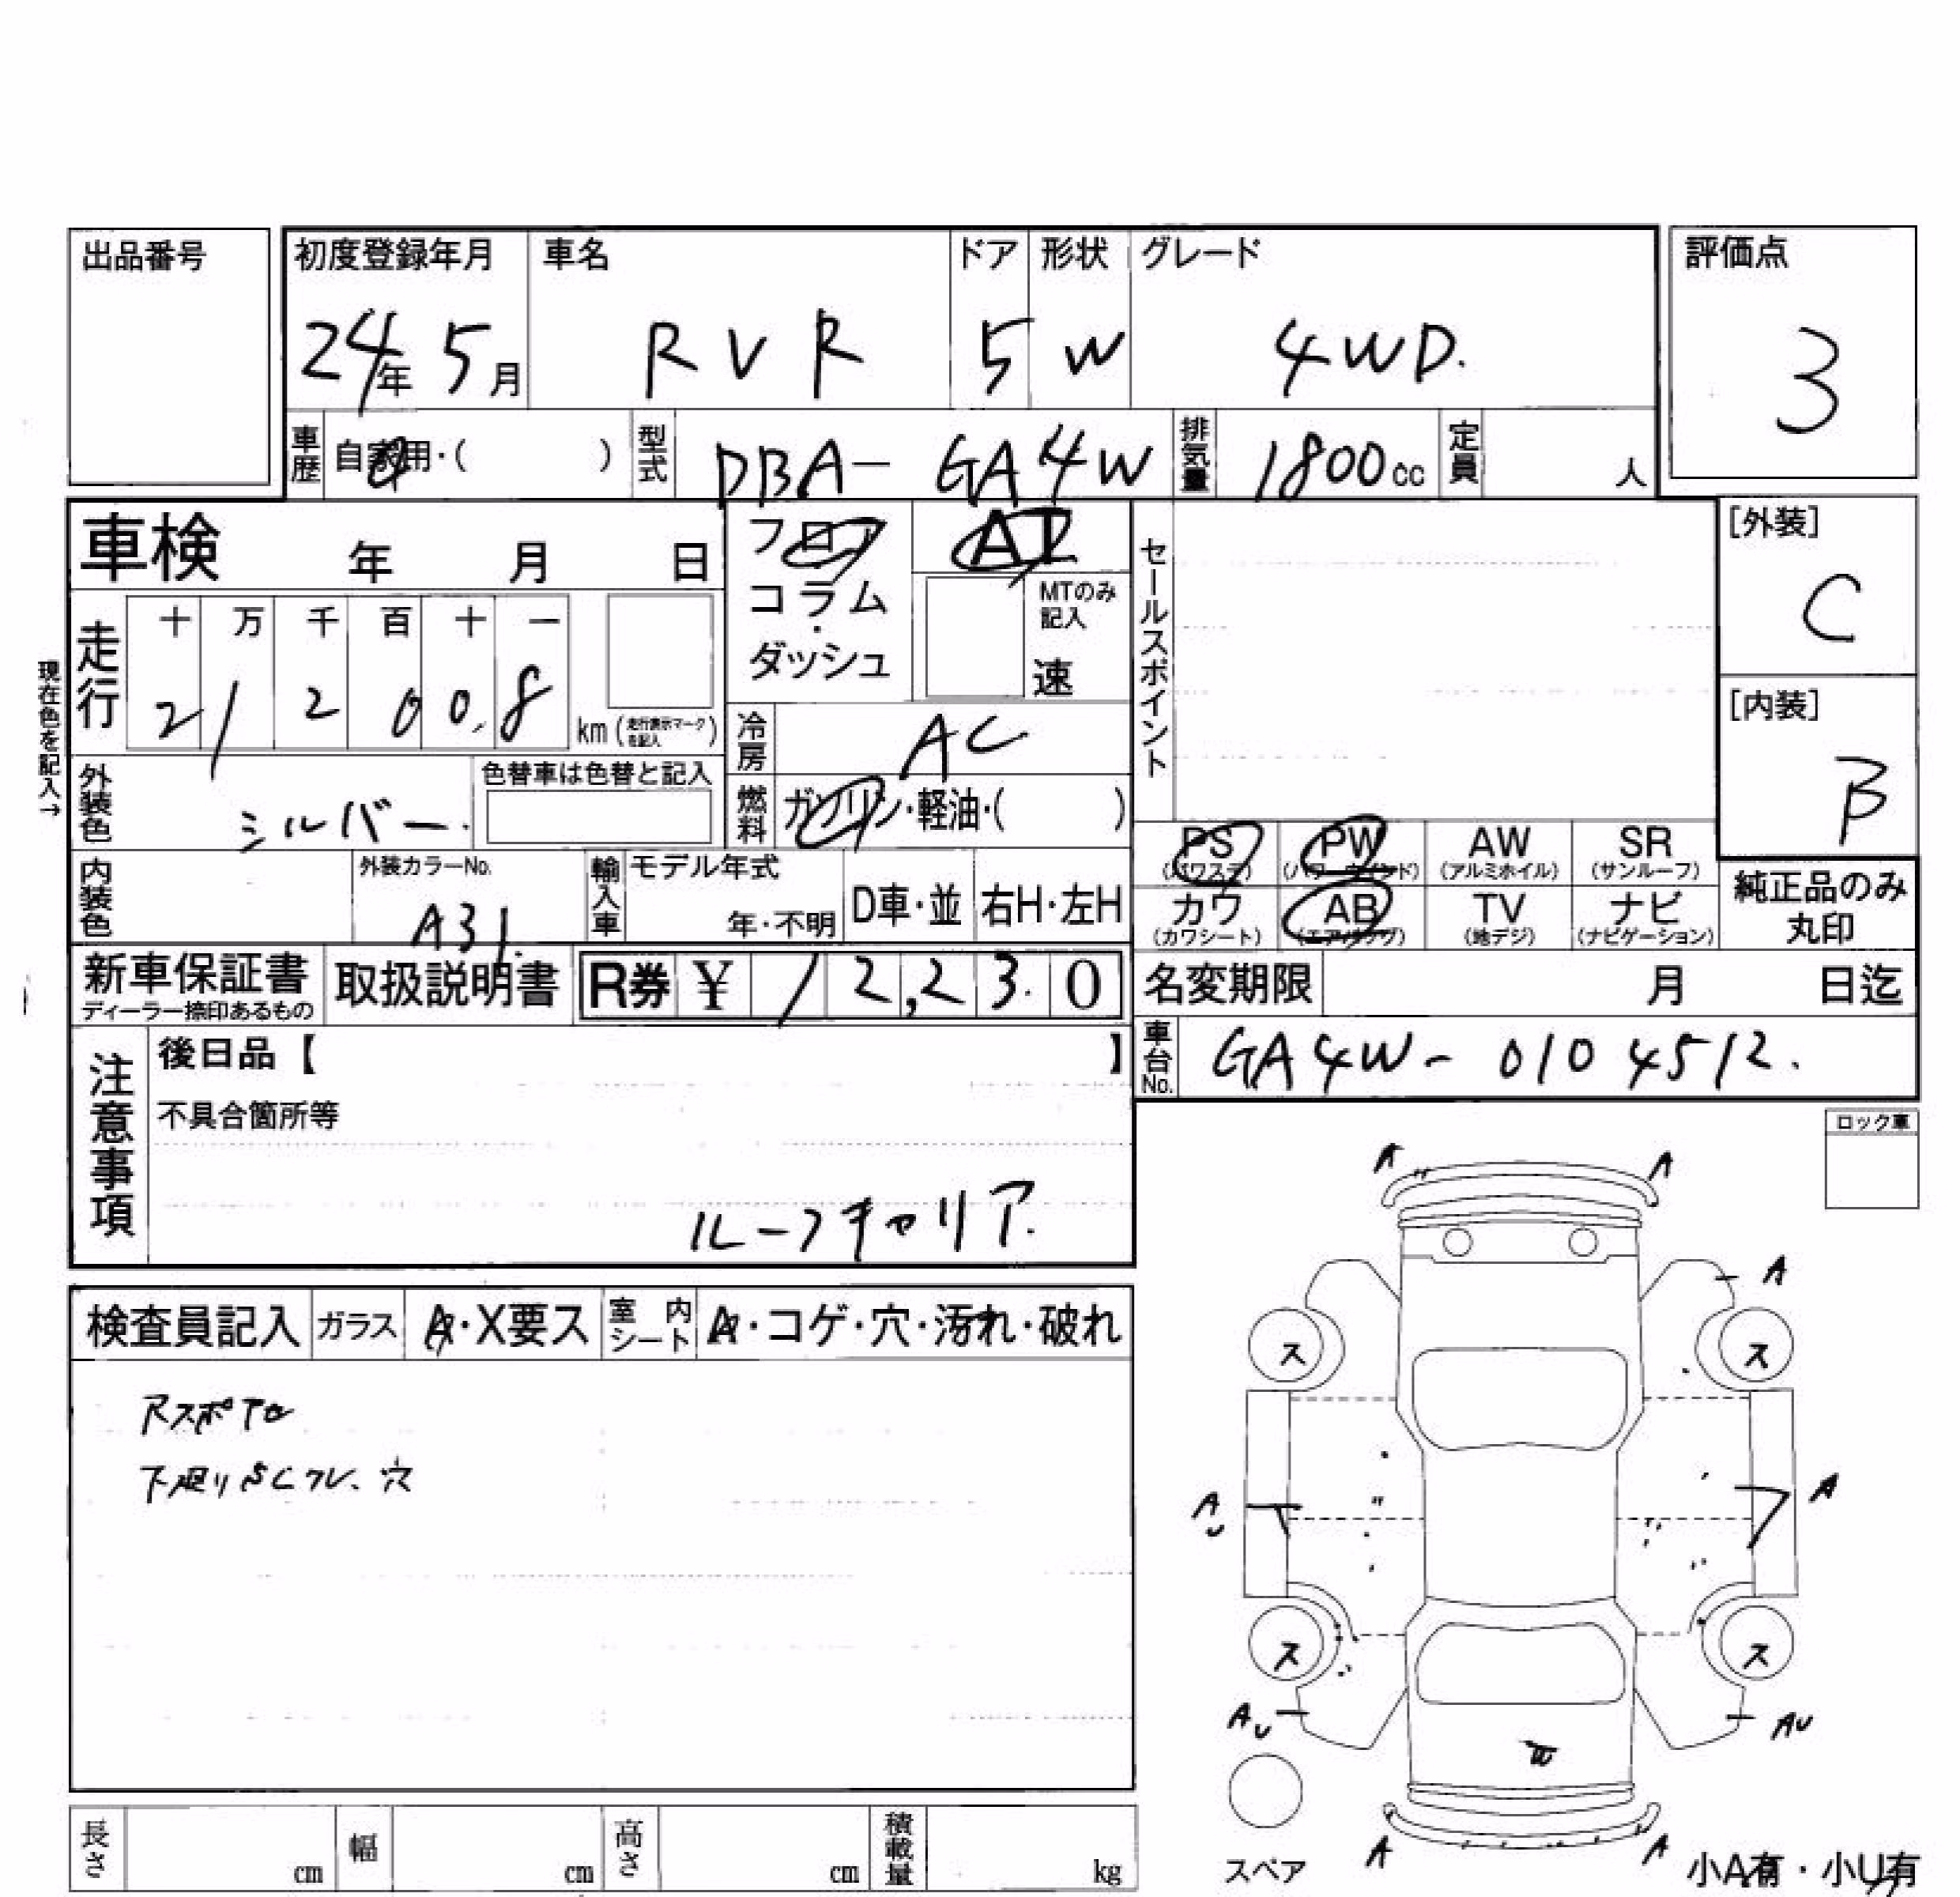 出品番号
初度登録年月 車名 ドア 形状 グレード 評価点
24年 5月 RVR 5 W 4WD. 3
車歴 自家用・( ) 型式 DBA- GA4W 排気量 1800cc 定員 人
車検 年 月 日
フロア AT
コラム・ MTのみ記入
ダッシュ 速
セールスポイント
[外装]
C
[内装]
B
現在色を記入→
走行 十 万 千 百 十 一
2 1 2 0 0.8 km (走行表示マークを記入)
冷房 AC
外装色 シルバー. 色替車は色替と記入
燃料 ガソリン・軽油・( )
PS PW AW SR
(パワステ) (パワーウインド) (アルミホイル) (サンルーフ)
カワ AB TV ナビ
(カワシート) (エアバッグ) (地デジ) (ナビゲーション)
純正品のみ
丸印
内装色 外装カラーNo. A31. 輸入車 モデル年式 年・不明 D車・並 右H・左H
新車保証書 取扱説明書 R券 ¥ 1 2,2 3. 0
ディーラー捺印あるもの
名変期限 月 日迄
車台No. GA4W- 0104512.
注意事項 後日品【 】
不具合箇所等
ルーフキャリア.
ロック車
検査員記入 ガラス A・X要ス 室内シート A・コゲ・穴・汚れ・破れ
穴
A A
A
ス ス
A U A
ス ス
AU AU
A A
スペア
小A有・小U有
長さ cm 幅 cm 高さ cm 積載量 kg